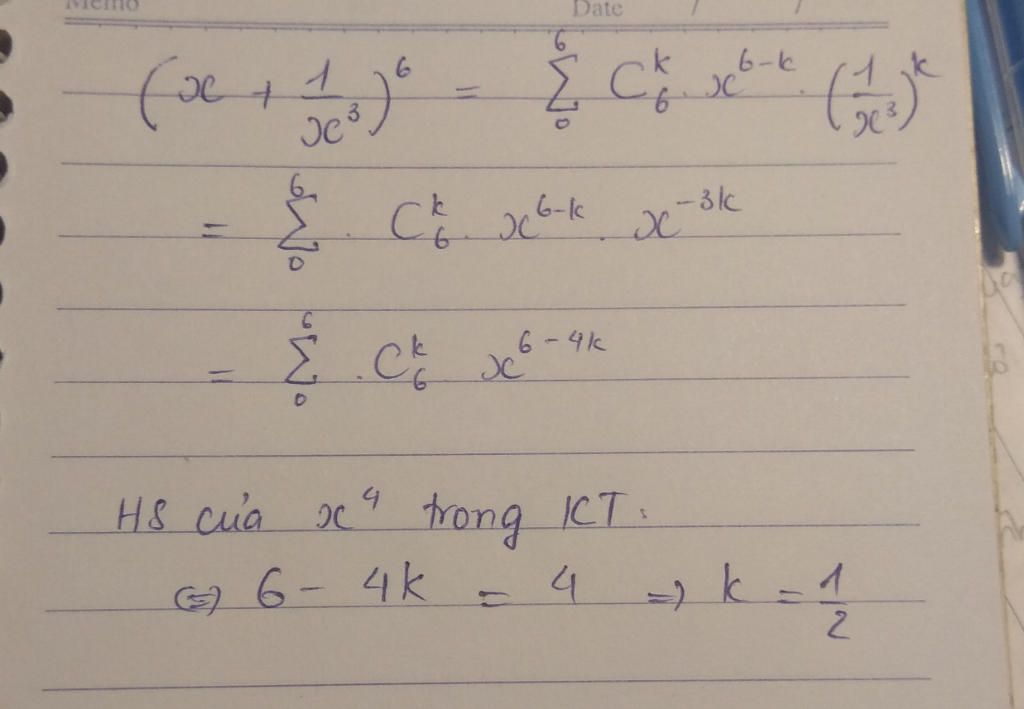 Memo Date / /
(x + 1/x³)⁶ = ∑₀⁶ C₆ᵏ . x⁶⁻ᵏ . (1/x³)ᵏ
= ∑₀⁶ . C₆ᵏ . x⁶⁻ᵏ . x⁻³ᵏ
= ∑₀⁶ . C₆ᵏ x⁶⁻⁴ᵏ
HS của x⁴ trong KT :
⇔ 6 - 4k = 4 ⇒ k = 1/2